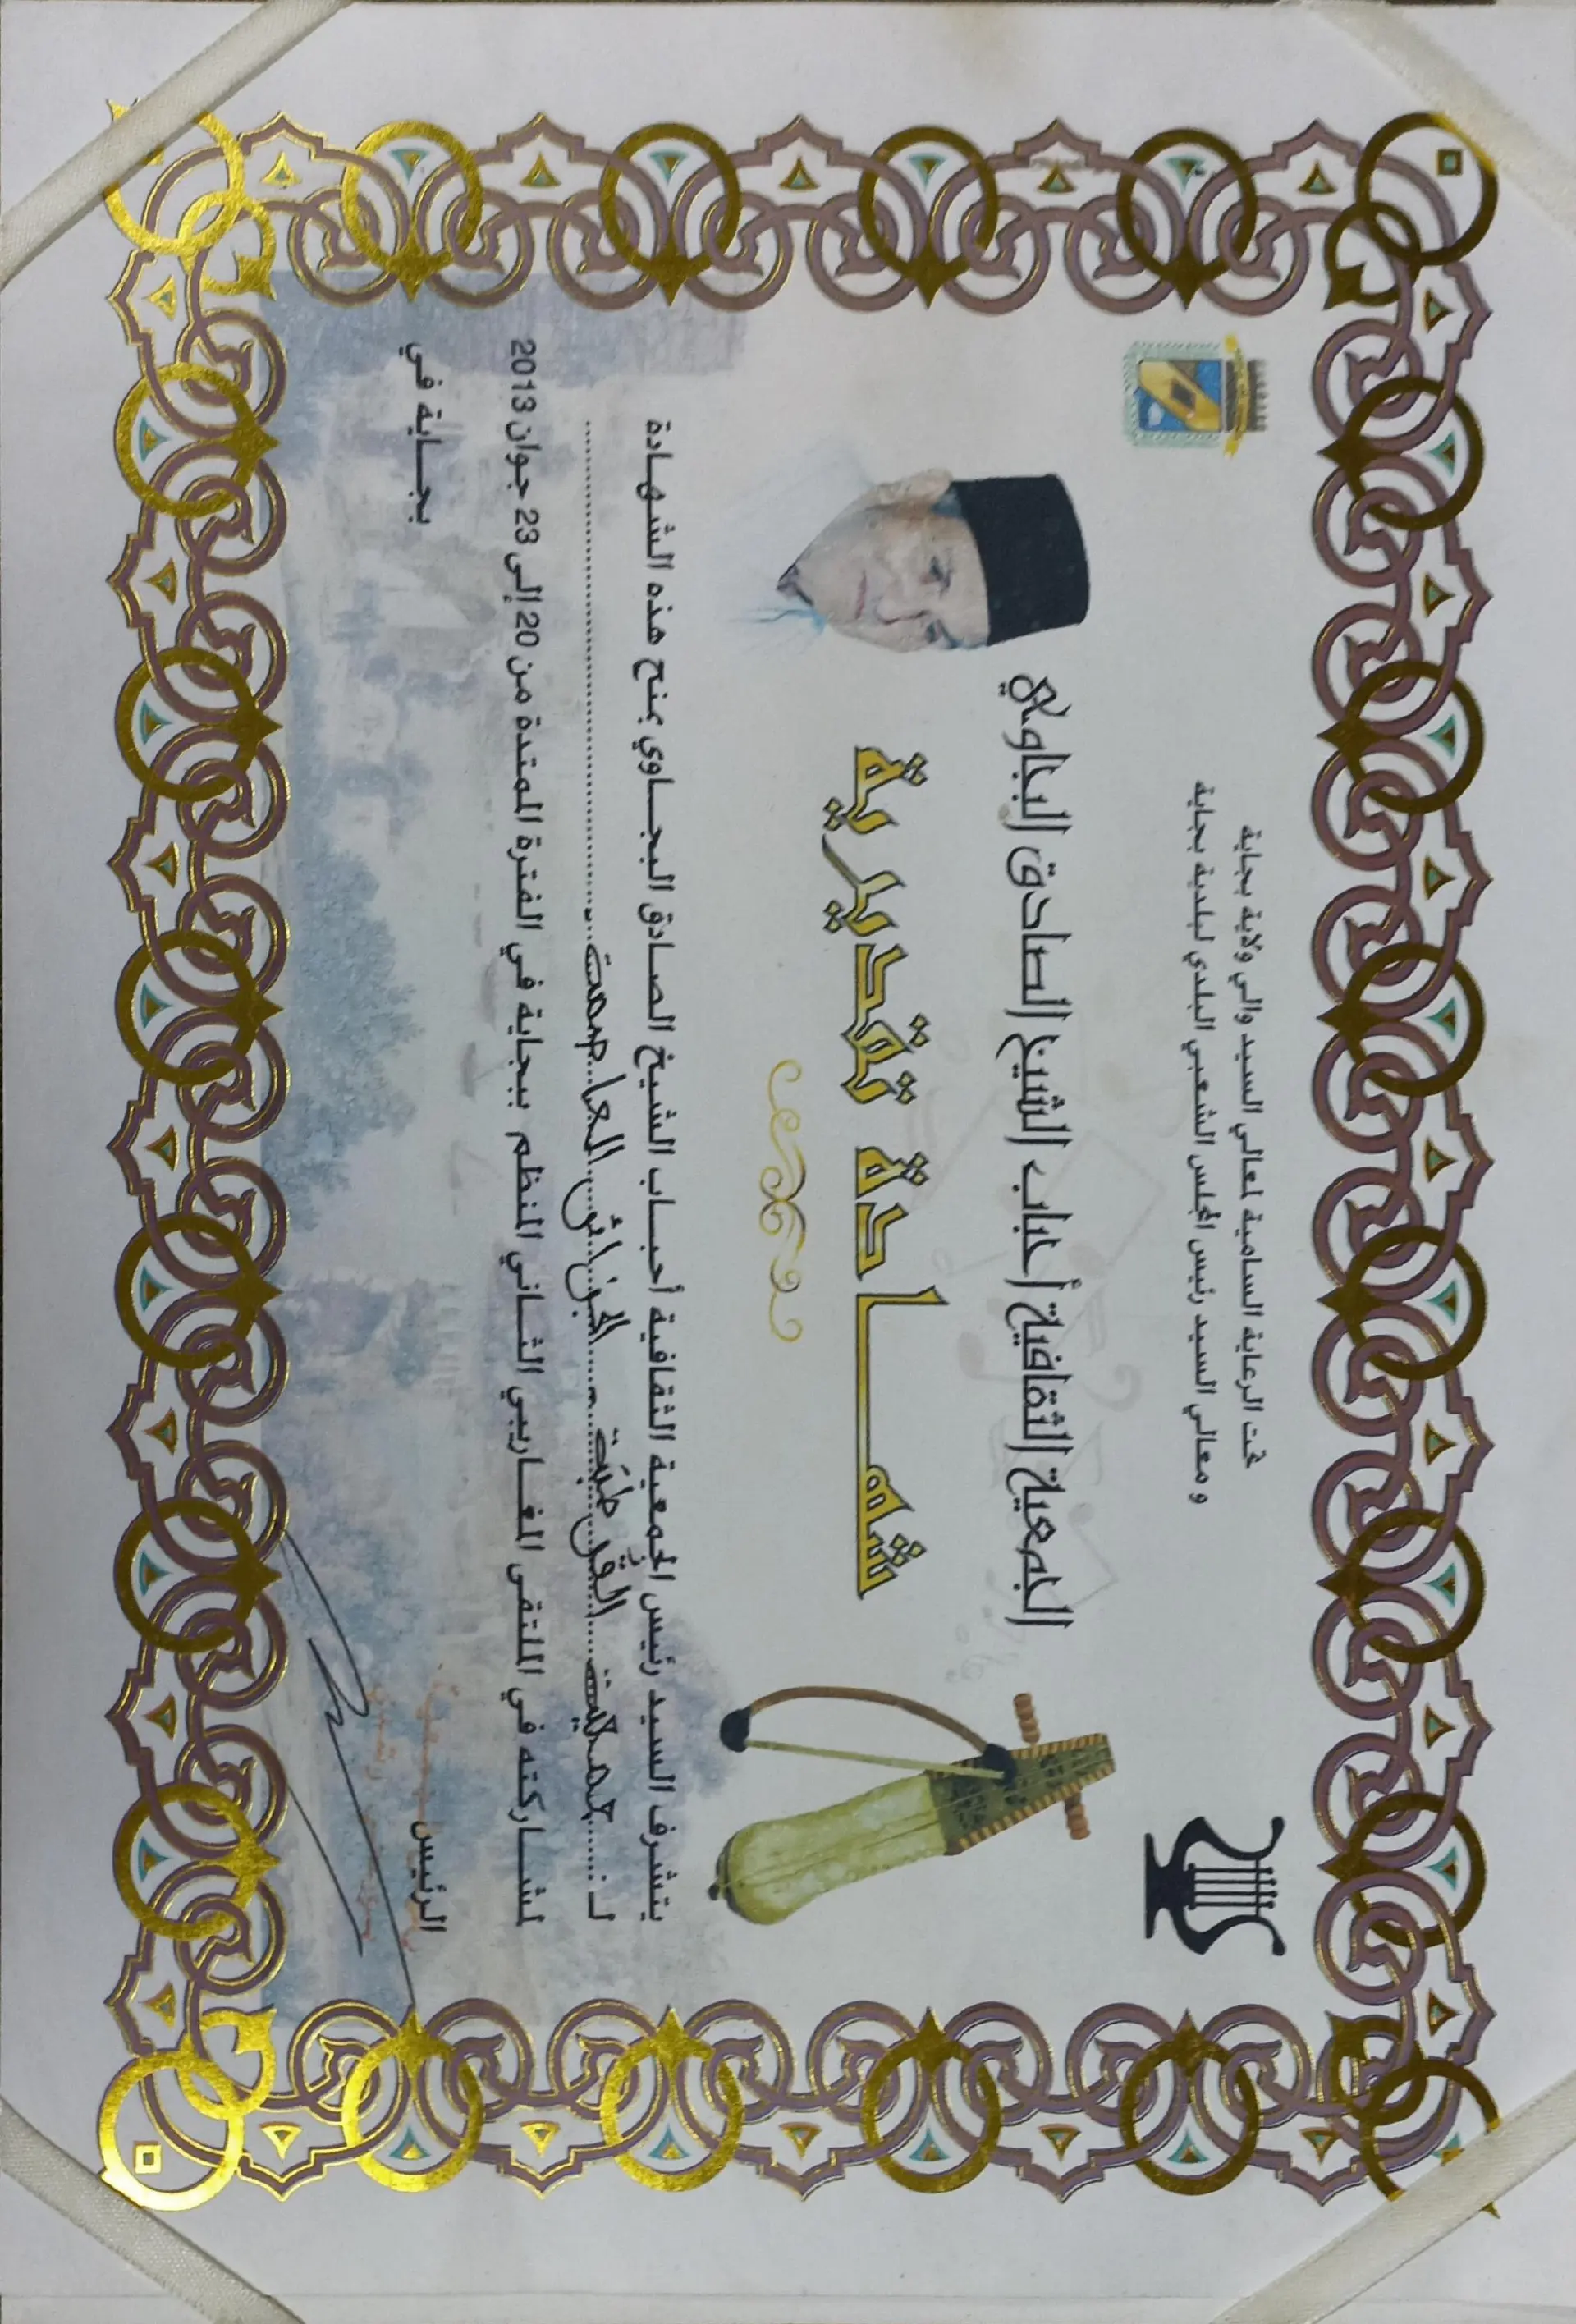 تحت الرعاية السامية لمعالي السيد والي ولاية بجاية
و معالي السيد رئيس المجلس الشعبي البلدي لبلدية بجاية
الجمعية الثقافية أحباب الشيخ الصادق البجاوي
شهــــادة تقديرية
يتشرف السيد رئيس الجمعية الثقافية أحبــاب الشيخ الصــادق البجــاوي بمنح هذه الشهــادة
لـ : جمعية القرطبية الجزائر العاصمة
لمشــاركته في الملتقى المغــاربي الثــاني المنظم ببجاية في الفترة الممتدة من 20 إلى 23 جوان 2013
الرئيس
بجــاية في